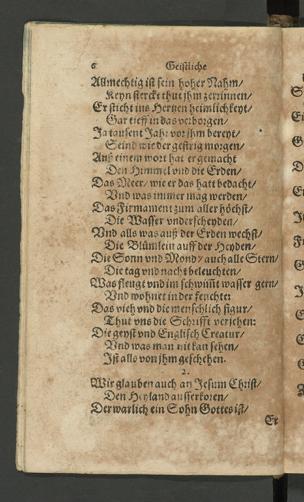 6 Geistliche
Allmechtig ist sein hoher Nahm/
Keyn sterckt thut jhm zerrinnen/
Er sicht ins Hertzen heimlichkeyt/
Gar tieff in das verborgen/
Ja tausent Jahr vor jhm bereyt/
Seind wie der gestrig morgen/
Auß einem wort hat er gemacht
Den Himmel vnd die Erden/
Das Meer/ wie er das hatt bedacht/
Vnd was immer mag werden/
Das Firmament zum aller höchst/
Die Wasser vnderscheyden/
Vnd alls was auß der Erden wechst/
Die Blümlein auff der Heyden/
Die Sonn vnd Mond/ auch alle Stern/
Die tag vnd nacht beleuchten/
Was fleugt vnd im schwimt wasser gern/
Vnd wohnet in der feuchte:
Das vieh vnd die menschlich figur/
Thut vns die Schrifft verjehen:
Die geyst vnd Englisch Creatur/
Vnd was man nit kan sehen/
Ist alls von jhm geschehen.
2.
Wir glauben auch an Jesum Christ/
Den Heyland ausserkoren/
Der warlich ein Sohn Gottes ist/
Er